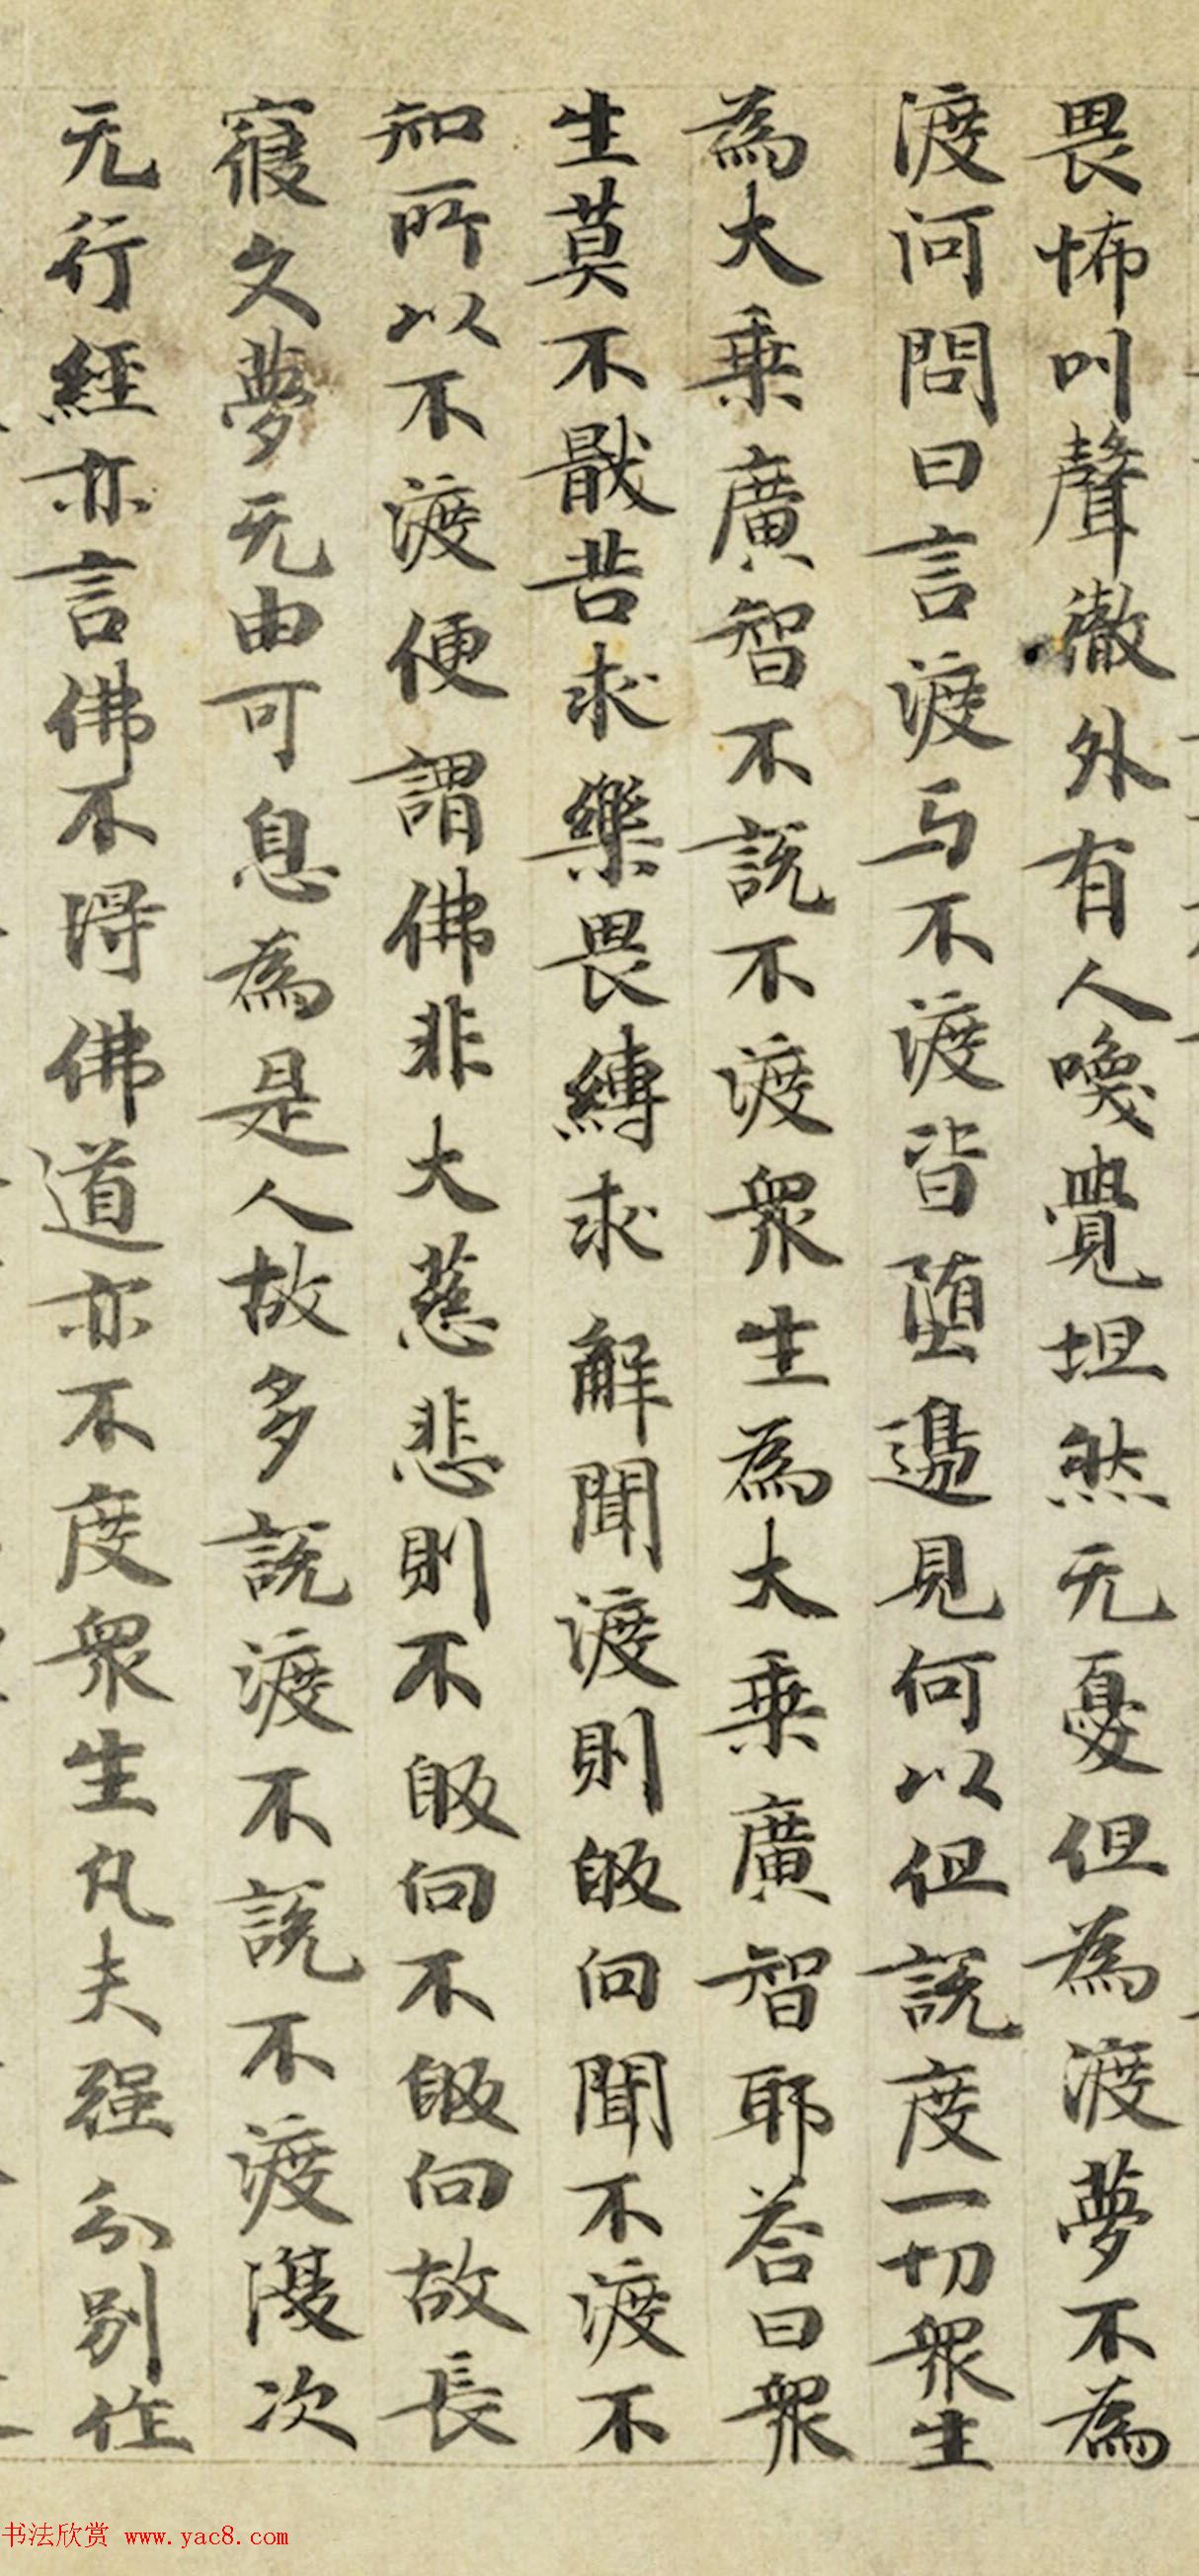 畏怖叫聲徹外有人喚覺坦然无憂但為渡夢不為
渡河問曰言渡与不渡皆堕邊見何以但說度一切衆生
為大乗廣智不說不渡衆生為大乗廣智耶荅曰衆
生莫不猒苦求樂畏縛求解聞渡則皈向聞不渡不
知所以不渡便謂佛非大慈悲則不皈向不皈向故長
寢久夢无由可息為是人故多說渡不說不渡復次
无行經亦言佛不得佛道亦不度衆生凡夫强分别作
书法欣赏 www.yac8.com